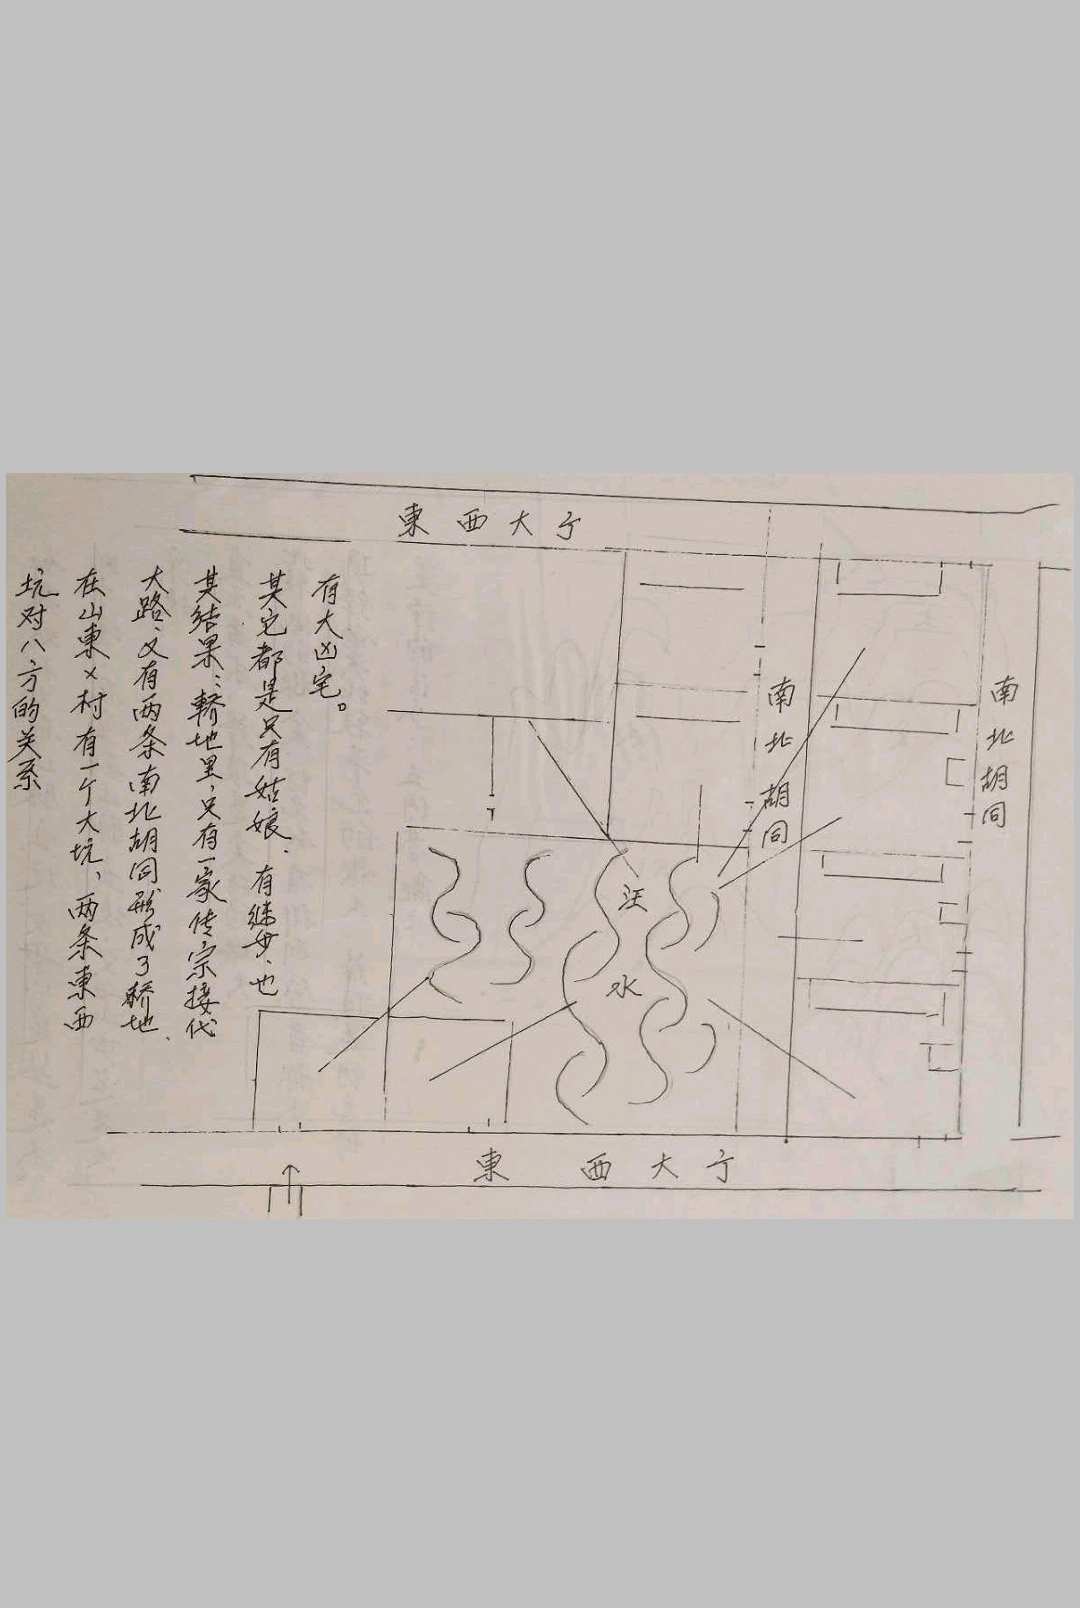 坑对八方的关系
在山東×村有一个大坑，两条東西
大路、又有两条南北胡同形成了轿地、
其结果：轿地里，只有一家传宗接代
其它都是只有姑娘、有继母、也
有大凶宅。
東西大亍
南北胡同
南北胡同
汪水
東西大亍